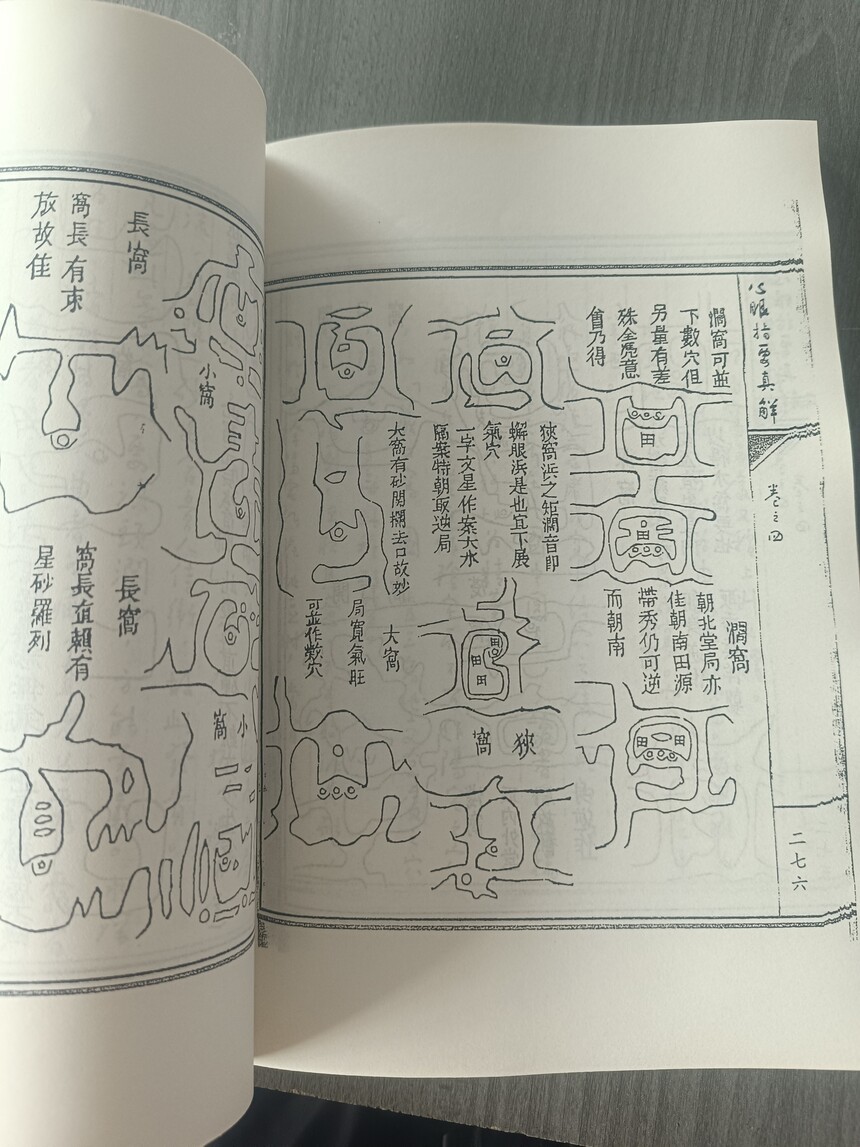 心眼指要真解
卷之四
二七六
濶窩可並
下數穴但
另量有差
殊全憑意
會乃得
濶窩
朝北堂局亦
佳朝南田源
帶秀仍可逆
而朝南
狹窩浜之矩濶音即
蠏眼浜是也宜下展
氣穴
一字文星作案大水
隔案特朝取逆局
狹窩
大窩有砂関攔法口故妙
大窩
局寬氣旺
可並作數穴
小窩
小窩
長窩
窩長有束
放故佳
長窩
窩長直賴有
星砂羅列